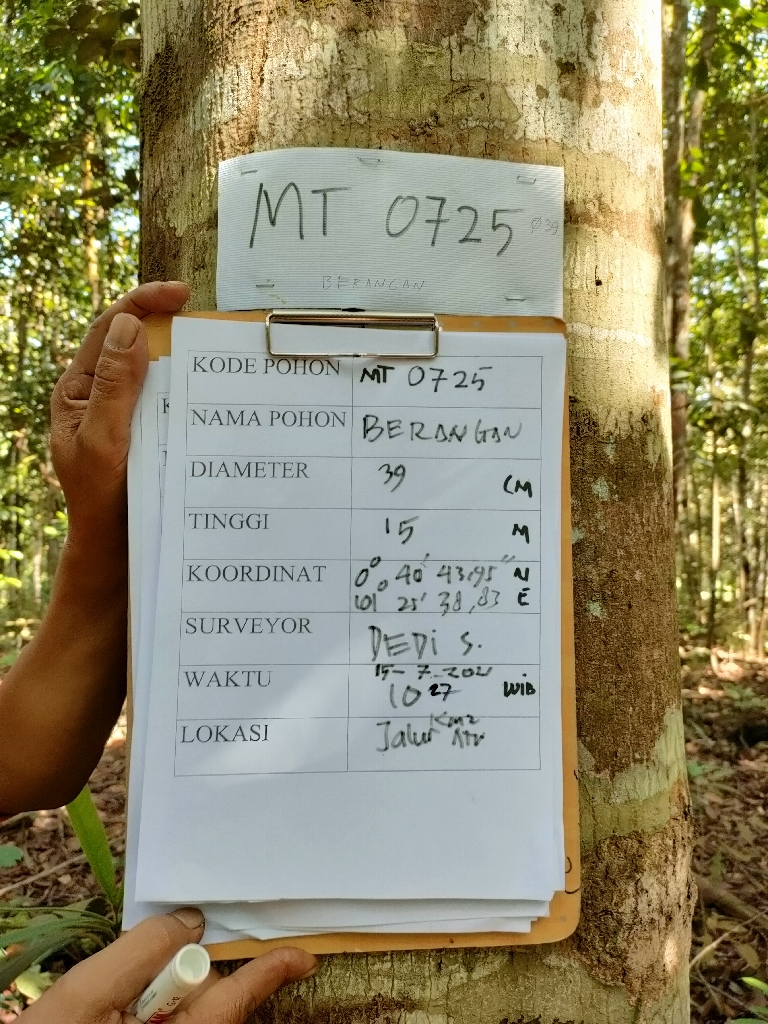 MT 0725 Ø 39
BERANGAN
KODE POHON MT 0725
NAMA POHON BERANGAN
DIAMETER 39 CM
TINGGI 15 M
KOORDINAT 0° 40' 43,95" N
101° 25' 38,83 E
SURVEYOR DEDI S.
WAKTU 15-7-2021
10 27 WIB
LOKASI Jalur Km2